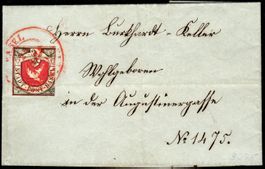 BASEL
Herrn Burkhardt-Keller
Wohlgeboren
in der Augustinergasse
No 1475.